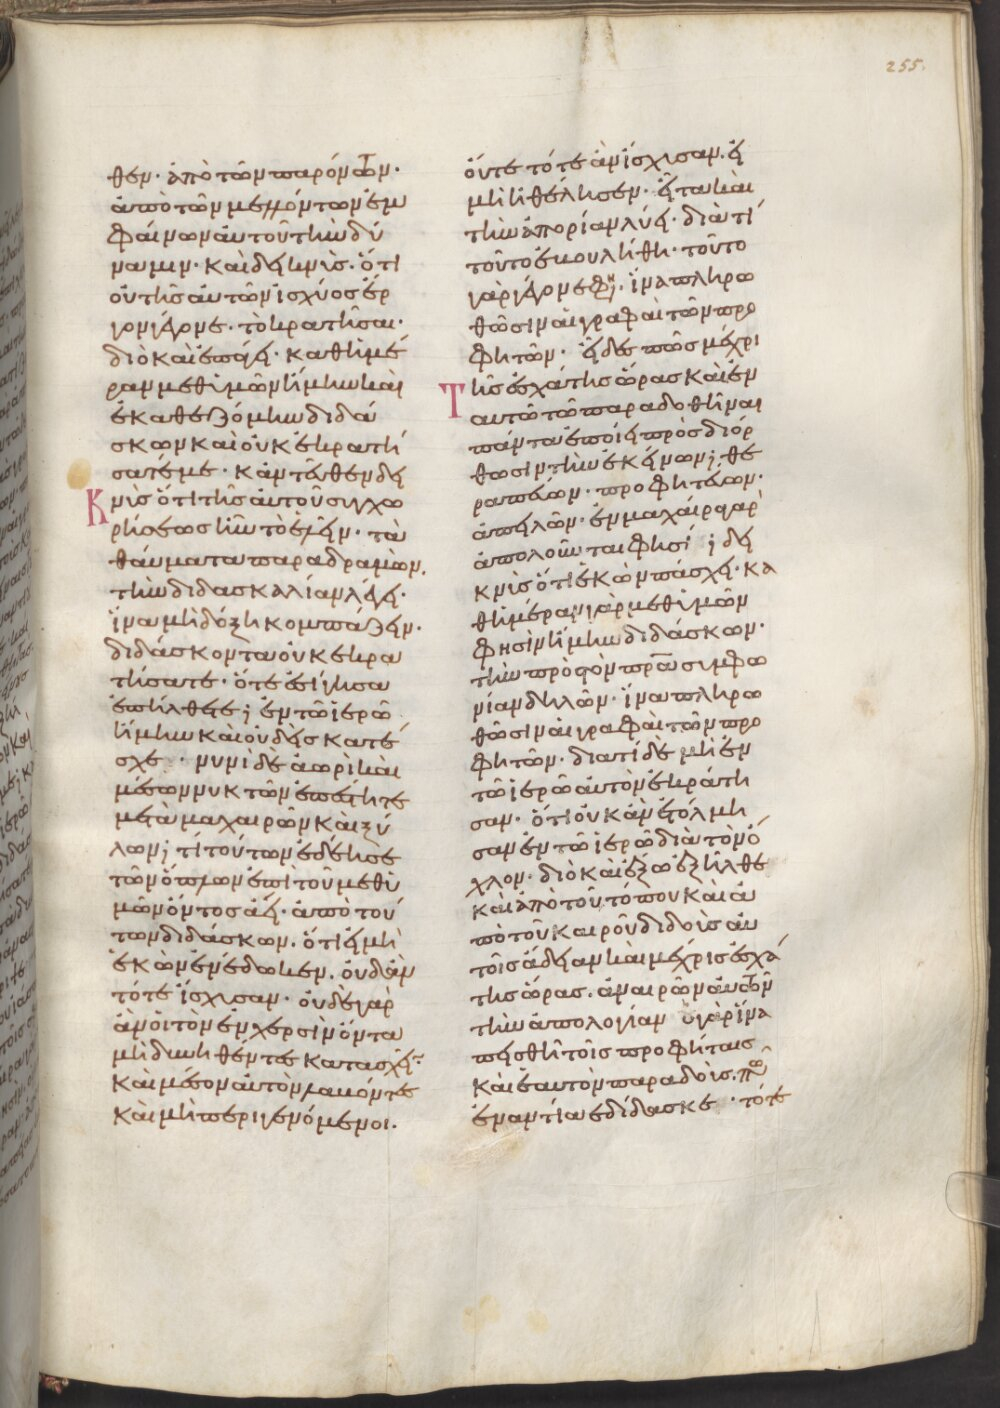 θεν· ἀπὸ τῶν παρόντων·
ἀπὸ τῶν μελλόντων ἐμ
φαίνων αὐτοῦ τὴν δύ
ναμιν· καὶ δεικνὺς· ὅτι
οὐ τῆς αὐτῶν ἰσχύος ἔρ
γον γέγονε· τὸ κρατῆσαι·
διὸ καὶ ἐπάγει· καθημέ
ραν μεθὑμῶν ἤμην καὶ
ἐκαθεζόμην διδά
σκων καὶ οὐκ ἐκρατή
σατέ με· κἀντεῦθεν δει
Κνὺς ὅτι τῆς αὐτοῦ συγχω
ρήσεως ἦν τὸ ἑλεῖν· τὰ
θαύματα παραδραμὼν.
τὴν διδασκαλίαν λέγει·
ἵνα μὴ δόξη κομπάζειν·
διδάσκοντα οὐκ ἐκρα
τήσατε· ὅτε ἐσίγησα
ἐπήλθετε; ἐν τῶ ἱερῶ
ἤμην καὶ οὐδεὶς κατέ
σχε· νυνὶ δὲ ἀωρὶ καὶ
μέσων νυκτῶν ἐπέστητε
μετὰ μαχαιρῶν καὶ ξύ
λων; τί τούτων ἐδέησε
τῶν ὅπλων ἐπὶ τοῦ μεθὑ
μῶν ὄντος ἀεί· ἀπὸ τού
των διδάσκων· ὅτι εἰ μὴ
ἑκὼν ἐνέδωκεν. οὐδἂν
τότε ἴσχυσαν· οὐδὲ γὰρ
ἂν οἱ τὸν ἐν χερσὶν ὄντα
μὴ δυνηθέντες κατασχεῖν
καὶ μέσον αὐτὸν λαβόντες
καὶ μὴ περιγενόμενοι.
255.
οὔτε τότε ἂν ἴσχυσαν. εἰ
μὴ ἠθέλησεν· εἶτα καὶ
τὴν ἀπορίαν λύει· διὰ τί
τοῦτο ἐβουλήθη· τοῦτο
γὰρ γέγονε φη· ἵνα πληρω
θῶσιν αἱ γραφαὶ τῶν προ
φητῶν· εἶδες πῶς μέχρι
Τῆς ἐσχάτης ὥρας καὶ ἐν
αὐτῶ τῶ παραδοθῆναι
πάντα ἐποίει πρὸς διόρ
θωσιν τὴν ἐκείνων; θε
ραπεύων· προφητεύων·
ἀπειλῶν· ἐν μαχαίρα γὰρ
ἀπολοῦνται φησί; δει
κνὺς ὅτι ἑκὼν πάσχει· κα
θημέραν γὰρ μεθὑμῶν
φησὶν ἤμην διδάσκων·
τὴν πρὸς τὸν πρα συμφω
νίαν δηλῶν· ἵνα πληρω
θῶσιν αἱ γραφαὶ τῶν προ
φητῶν· διατί δὲ μὴ ἐν
τῶ ἱερῶ αὐτὸν ἐκράτη
σαν· ὅτι οὐκ ἂν ἐτόλμη
σαν ἐν τῶ ἱερῶ διὰ τὸν ὄ
χλον· διὸ καὶ ἔξω ἐξῆλθε
καὶ ἀπὸ τοῦ τόπου καὶ ἀ
πὸ τοῦ καιροῦ διδοὺς αὐ
τοῖς ἄδειαν καὶ μέχρις ἐσχά
της ὥρας. ἀναιρῶν αὐτῶν
τὴν ἀπολογίαν ὁ γὰρ ἵνα
πεισθῆ τοῖς προφήταις
καὶ ἑαυτὸν παραδοὺς. πῶς
ἐναντία ἐδίδασκε· τότε